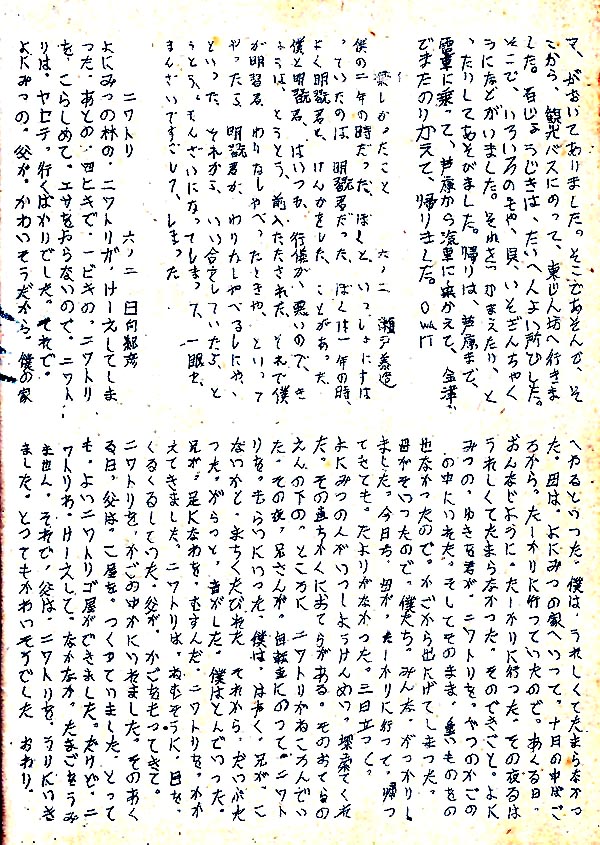 て、がおいてありました。そこであそんで、そ
こから、観光バスにのって、東じん坊へ行きま
した。石じょうじきは、たいへんよい所でした。
そこで、いろいろのもや、貝、いそぎんちゃく
うになどがいました。それをつかまえたり、と
ったりしてあそびました。帰りは、芦原まで、
電車に乗って、芦原から汽車に乗かえて、金津
でまたのりかえて、帰りました。 OWARI
楽しかったこと 六ノ二 瀬戸義造
僕の一年の時だった、ぼくと、いっしょにすは
っていたのは、明説君だった、ぼくは一年の時、
よく明説君と、けんかをした、ことがあった、
僕と明説君、はいつも、行儀が、悪いので、き
ょうは、とうとう、前へたたされた、それで僕
が明説君、わりなしゃべったときや、といって
やったら、明説君が、わりなしゃべるしにや、
といった、それから、いい合をしていたら、と
うとう、もんさいになってしまって、一眼を、
まんさいですごして、しまった
ニワトリ 六ノ二 日向
よにみつの林の、ニワトリが、けーえしてしま
った、あとの、四ヒキで、一ピキの、ニワトリ
を、こらしめて。エサをおらないので。ニワト
リは、ヤセテ。行くばかりでした。それで。
よにみつの。父が。かわいそうだから。僕の家
へやるといった。僕は、うれしくてたまらなかっ
た。母は、よにみつの家へいって。十日の中ばご
ろから。たーかりに行っていたので。あくる日。
おんなじように。たーかりに行った。その夜るは
うれしくてたまらなかった。そのできごと。よに
みつの、ゆきを君が、ニワトリを。やつのかごの
の中にいれた。そしてそのまま。重いものをの
せなかったので。かごから出にげてしまった。
母がそいったので。僕たち。みんな。がっかりし
ました。今日も、母が、たーかりに行って。帰っ
てきても。たよりがなかった。三日立つく。
よにみつの人がいっしょうけんめい。探索てくれ
た。その直ちかくにおてらがある。そのおてらの
えんの下の。ところに ニワトリがねころんでい
た。その夜。兄さんが。自転車にのって。ニワト
リを。もらいにいった。僕は、はやく。兄が、こ
ないかと。まちくたびれた それから、だいぶた
った。がらっと、音がした。僕はとんでいった。
兄が。足になわを。むすんだ。ニワトリを。かか
えてきました。ニワトリは。ねむそうに。目を、
くるくるしていた。父が。かごをもってきて。
ニワトリを。かごの中かにいれました。そのあく
る日。父は。こ屋を。つくっていました。とって
も。よいニワトリゴ屋ができました。だけど。ニ
ワトリわ。けーえして。なかなか。たまごをうみ
ません。それで。父は。ニワトリを。うりにいき
ました。とってもかわいそうでした おわり。